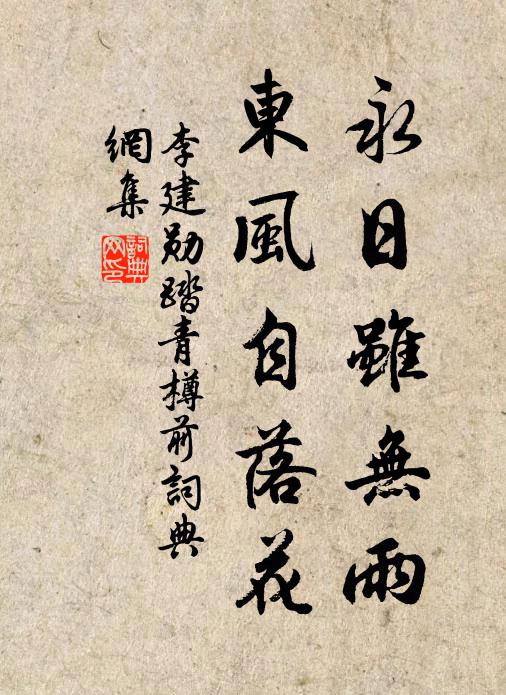 永日雖無雨
東風自落花
李建勋踏青樽前詞典
網集
詞典
网印